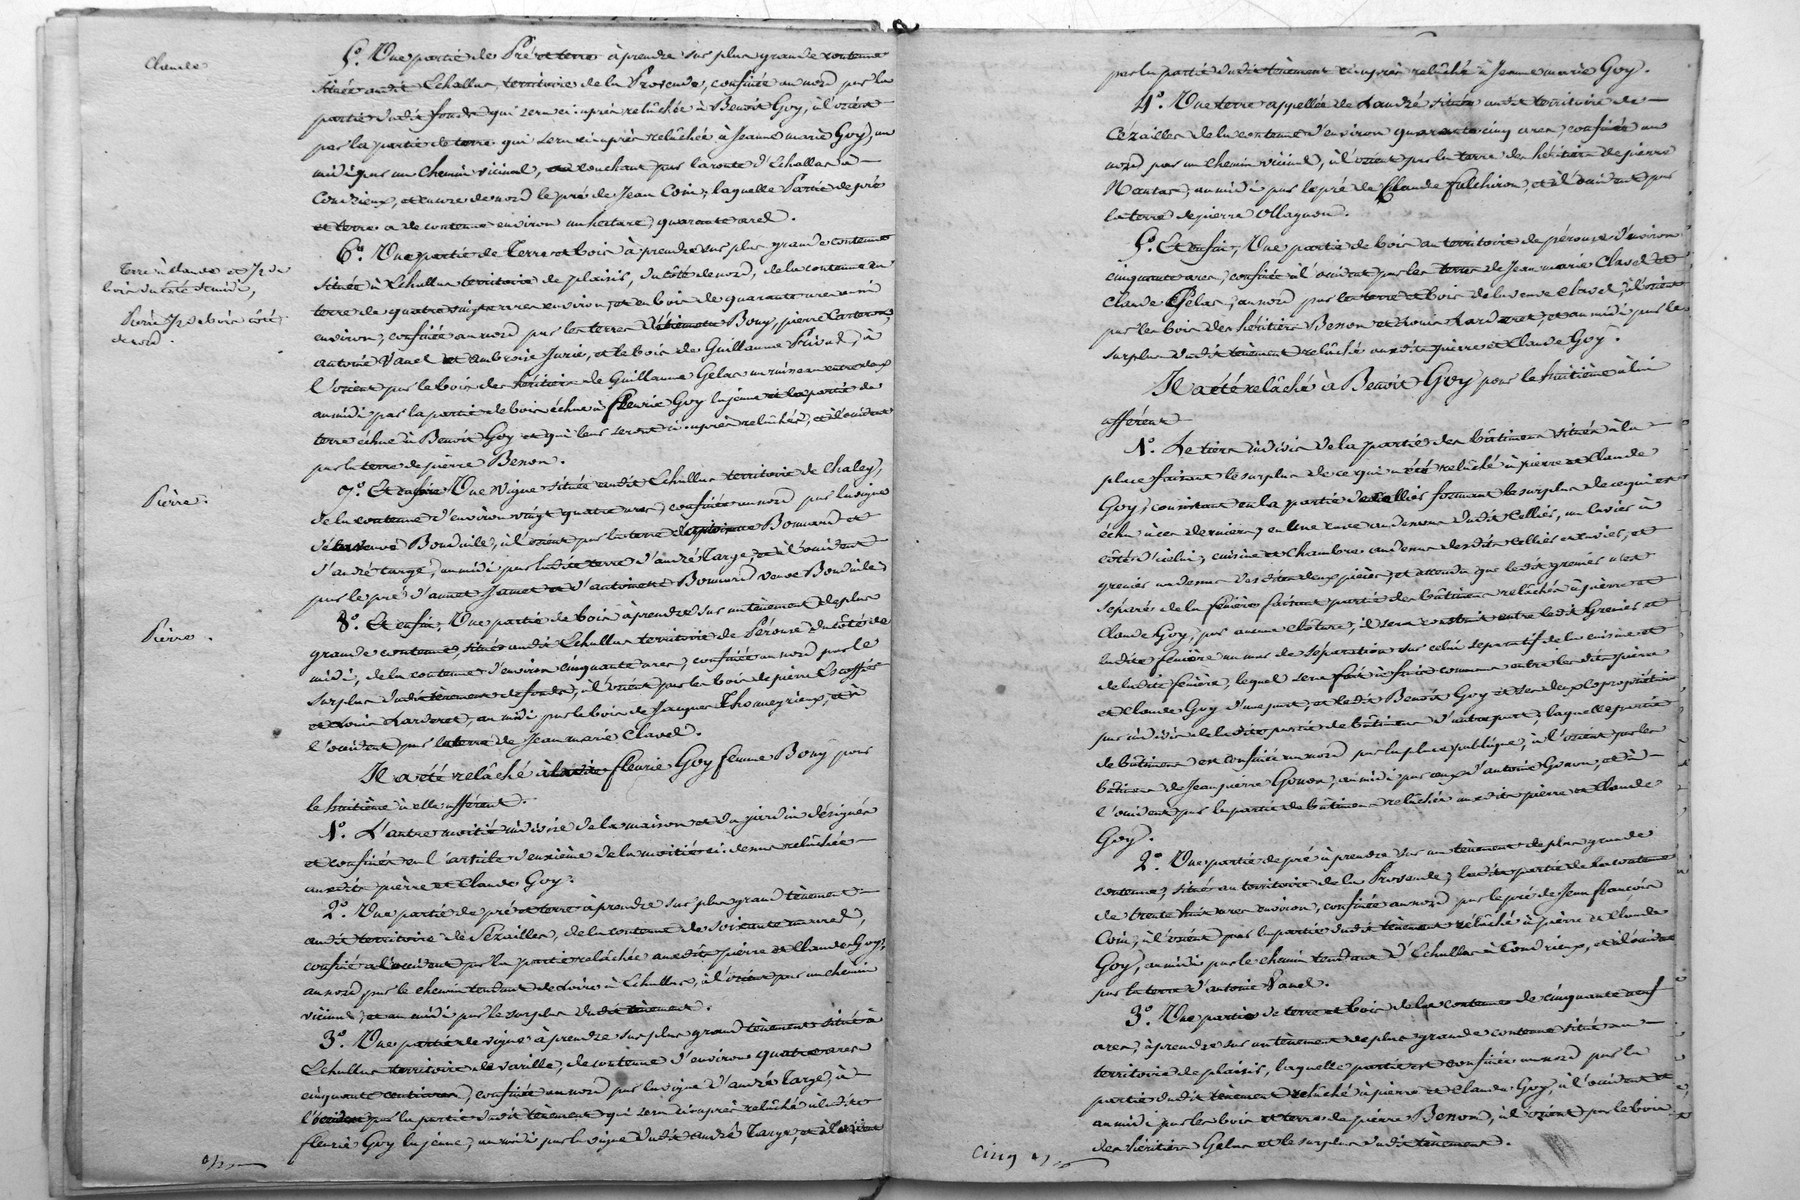 Claude
5.° Une partie de Pré et terre à prendre sur plus grande contenue
située audit Echallas, territoire de la Provende, confinée au nord par la
partie dudit fonds qui sera ci-après relâchée à Benoit Goy, à l'orient
par la partie de terre qui sera ci après relâchée à Jeanne marie Goy, au
midi par un Chemin vicinal, au couchant par la route d'Echallas à
Condrieux, et encore de nord le pré de Jean Coin, laquelle Partie de pré
et terre a de contenue environ un hectare, quarante ares.
Terre à claude et 1/2 de
bois du coté de midi,
Pierre 1/2 de bois côté
de nord.
6.° Une partie de Terre et bois à prendre sur plus grande contenue
située à Echallas territoire de plaisis, du côté de nord, de la contenue en
terre de quatre vingts ares environ, et en bois de quarante ares aussi
environ, confinée au nord par les terres d'étienne Bouy, pierre
antoine Vanel et ambroise Jurie, et le bois de Guillaume Privas, à
l'orient par le bois des héritiers de Guillaume Gelas un ruisseau entre deux
au midi par la partie de bois échue à fleurie Goy la jeune et la partie de
terre échue à Benoit Goy et qui leur seront ci après relâchés, et à l'occident
par la terre de pierre Benon.
Pierre.
7.° Et enfin Une vigne située audit Echallas territoire de Chaley,
de la contenue d'environ vingt quatre ares, confinée au nord par la vigne
de la veuve Bonduile, à l'orient par la terre Bonnard et
d'andré targe, au midi par ladite terre d'andré Targe, et à l'occident
par le pré d'annet Jamet et d'antoinette Bonnard veuve Bonduile,
Pierre.
8.° Et enfin, Une partie de bois à prendre sur un tènement de plus
grande contenue, située audit Echallas territoire de Pérouse du côté de
midi, de la contenue d'environ cinquante ares, confinée au nord par le
surplus dudit tènement de fonds, à l'orient par les bois de pierre Escoffier
et Louis Larderet, au midi par le bois de Jacques Thomeyrieux, et à
l'occident par la terre de Jean marie Clavel.
Il a été relâché à ladite fleurie Goy femme Bouy pour
le huitième à elle afférent.
1.° L'autre moitié indivise de la maison et du jardin désignés
et confinés en l'article deuxième de la moitié ci-dessus relâchée
auxdits pierre et Claude Goy.
2.° Une partie de pré et terre à prendre sur plus grand tènement
audit territoire de Pezailles, de la contenue de soixante un ares,
confiné à l'occident par la partie relâchée auxdits pierre et Claude Goy,
au nord par le chemin tendant de Loire à Echallas, à l'orient par un chemin
vicinal, et au midi par le surplus dudit tènement.
3.° Une partie de vigne à prendre sur plus grand tènement situé à
Echallas territoire de varille, de contenue d'environ quatre ares
cinquante centiares, confinée au nord par la vigne d'andré targe, à
l'occident par la partie dudit tènement qui sera ci après relâché à ladite
fleurie Goy la jeune, au midi par la vigne dudit andré Targe, et à l'orient
par la partie dudit tènement ci après relâché à Jeanne marie Goy.
4.° Une terre appellée de Landré située audit territoire de
Cézailles de la contenue d'environ quarante cinq ares, confinée au
nord par un chemin vicinal, à l'orient par la terre des héritiers de pierre
Nantas, au midi par le pré de Claude fulchiron, et à l'occident par
la terre de pierre Ollagnon.
5.° Et enfin, Une partie de bois au territoire de pérouse d'environ
cinquante ares, confinée à l'occident par les terres de Jean marie Clavel et
Claude Gelas, au nord par la terre et bois de la veuve Clavel, à l'orient
par les bois des héritiers Benon et Louis Larderet, et au midi par le
surplus dudit tènement relâché auxdits pierre et Claude Goy.
Il a été relâché à Benoit Goy pour le huitième à lui
afférent
1.° Le tiers indivis de la partie des bâtimens situés à la
place faisant le surplus de ce qui a été relâché à pierre et Claude
Goy, consistant en la partie de cellier formant le surplus de ce qui est
échu à ces derniers, en une cave au dessous dudit Cellier, un évier à
côté d'icelui, cuisine et chambre au dessus desdits cellier et évier, et
grenier au dessus desdites deux pièces, et attendu que ledit grenier n'est
séparé de la fenière faisant partie des bâtimens relâchés à pierre et
Claude Goy, par aucune clôture, il sera construit entre ledit Grenier et
ladite fenière un mur de séparation sur celui séparatif de la cuisine et
de ladite fenière, lequel sera fait à frais communs entre lesdits pierre
et Claude Goy d'une part, et ledit Benoit Goy et ses deux copropriétaires
par indivis de ladite partie de bâtimens d'autre part; laquelle partie
de bâtimens est confinée au nord par la place publique, à l'orient par les
bâtimens de Jean pierre Gonon, au midi par ceux d'antoine Gonon, et à
l'occident par la partie de bâtimens relâchée auxdits pierre et Claude
Goy.
2.° Une partie de pré à prendre sur un tènement de plus grande
contenue, située au territoire de la Provende, ladite partie de la contenue
de trente huit ares environ, confinée au nord par le pré de Jean françois
Coin, à l'orient par la partie dudit tènement relâché à pierre et Claude
Goy, au midi par le chemin tendant d'Echallas à Condrieux, et à l'occident
par la terre d'antoine Vanel.
3.° Une partie de terre et bois de la contenue de cinquante neuf
ares, à prendre sur un tènement de plus grande contenue situé au
territoire de plaisis, laquelle partie est confinée au nord par la
partie dudit tènement relâché à pierre et Claude Goy, à l'occident et
au midi par les bois et terres de pierre Benon, à l'orient par le bois
des héritiers Gelas et le surplus dudit tènement.
Cinq